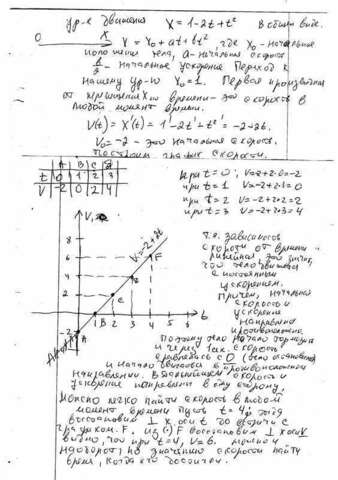 ур-е движения X = 1-2t+t² В общем виде.
O X
X = X₀ + at + bt² где X₀ - начальное
положение тела, a - начальная скорость
начальное ускорение Переход к
нашему ур-ю X₀=1. Первая производная
от времени - это скорость в
любой момент времени.
V(t) = X'(t) = 1'-2t'+t²' = -2+2t.
V₀ = -2 - это начальная скорость.
Построим график скорости.
A B C D
t 0 1 2 3
V -2 0 2 4
при t = 0; V=-2+2·0=-2
при t = 1 V=-2+2·1=0
при t = 2 V=-2+2·2=2
при t = 3 V=-2+2·3=4
V
V=-2+2t
8
6
4
2
-2
1 2 3 4 5 6 t
A
B
C
F
т.к. зависимость
скорости от времени -
линейная, это значит,
что тело движется
с постоянным
ускорением.
Причем, начальная
скорость и
ускорение
направлены
противоположно.
Поэтому тело начало тормозить
и через 1сек. скорость
равнялась с 0 (тело остановилось)
и начало двигаться в противоположном
направлении. В дальнейшем скорость и
ускорение направлены в одну сторону.
Можно легко найти скорость в любой
момент времени пусть t = 4, тогда
восстановим ⊥ к оси t до встречи с
графиком. F. из (·) F восстановим ⊥ к оси V
видно, что при t=4, V=6. можно и
наоборот, по значению скорости найти
время, когда его достигли.